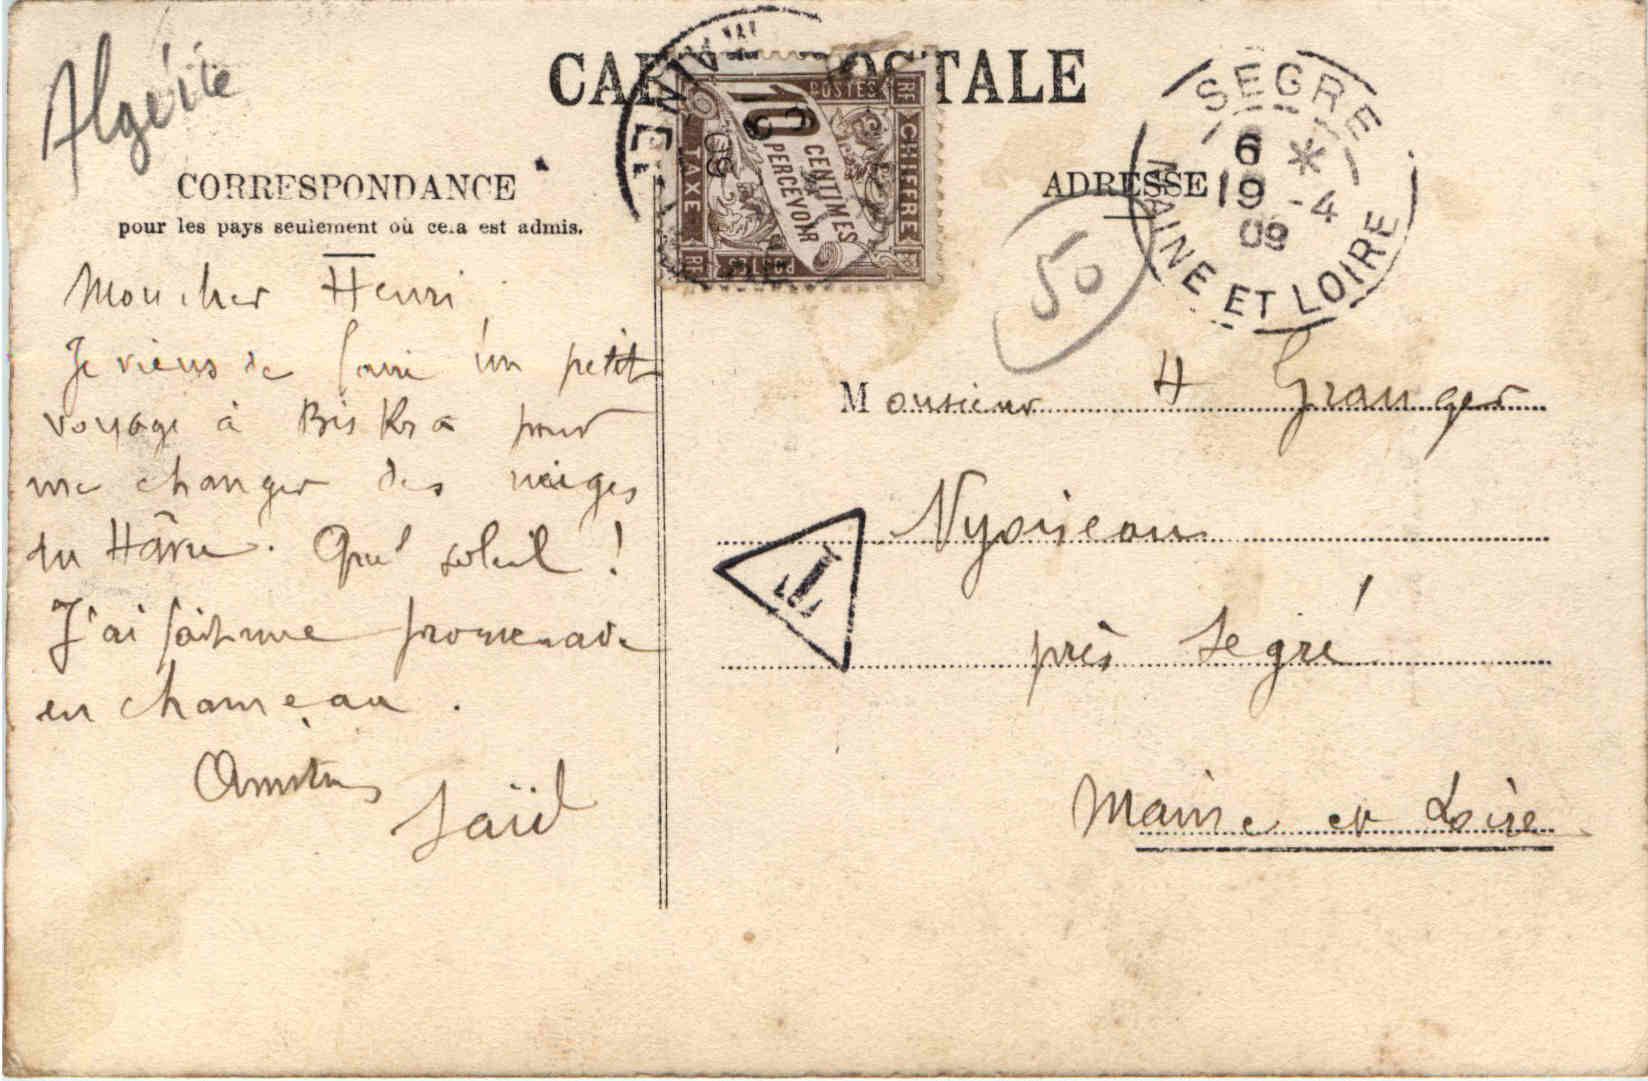 Algérie
CARTE POSTALE
CORRESPONDANCE
pour les pays seulement où cela est admis.
ADRESSE
RF POSTES RF
CHIFFRE
TAXE
10 CENTIMES
A PERCEVOIR
POSTES
RF
09
SEGRE
6 *
19 -4
09
MAINE ET LOIRE
50
T
Mon cher Henri
Je viens de faire un petit
voyage à Biskra pour
me changer des neiges
du Hâvre. Quel soleil !
J'ai fait une promenade
en chameau.
Amitiés
Monsieur H Granger
Nyoiseau
près Segré
Maine et Loire